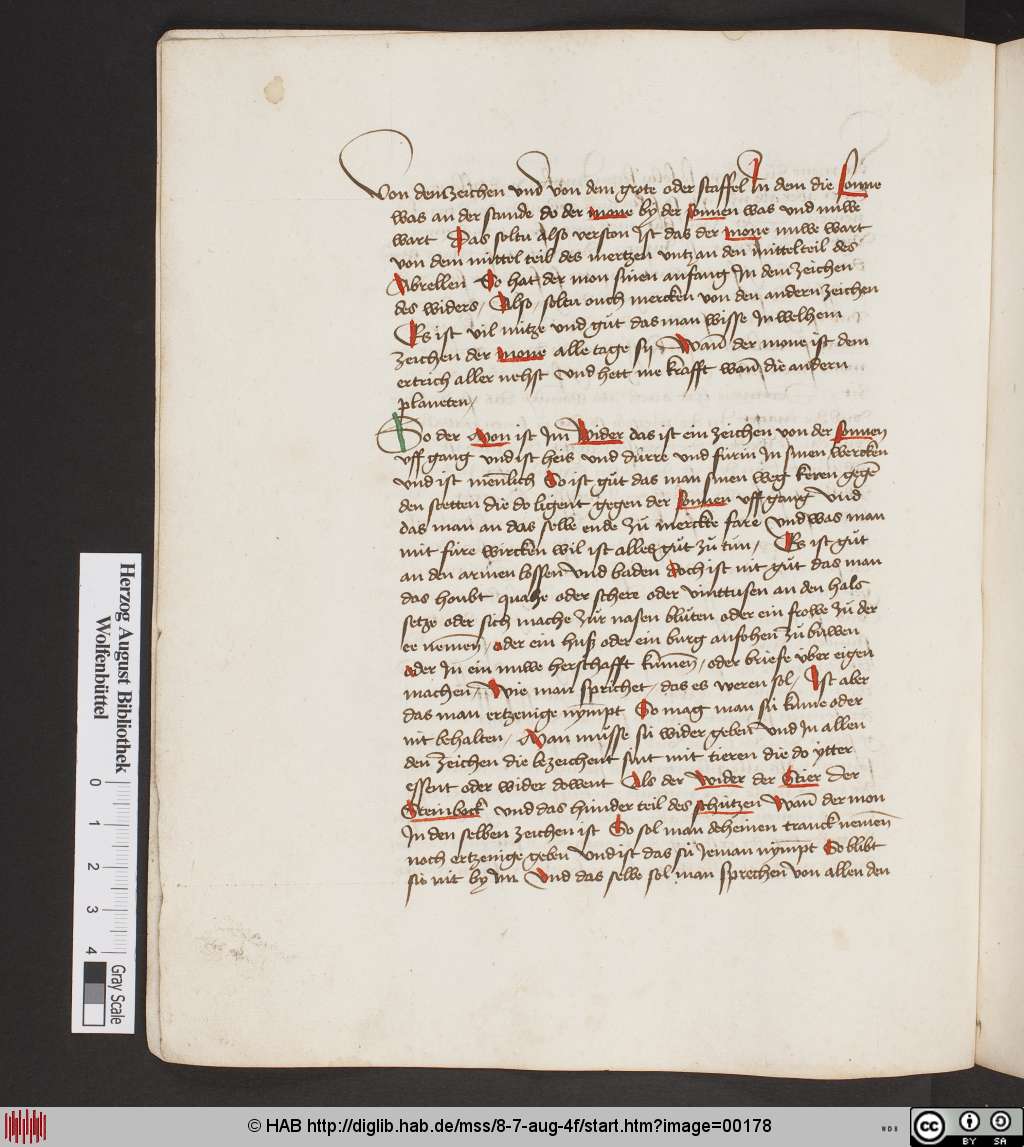 Von dem zeichen und von dem grote oder staffel In dem die Sonne
was an der stunde do der mone by der sonnen was und nuwe
wart Das soltu also verston Ist das der mone nuwe wart
von dem mittel teil des mertzen untz an den mittelteil des
Abrellen So hat der mon sinen anfang In dem zeichen
des widers / Also / soltu ouch mercken von den andern zeichen
Es ist vil nütze und güt das man wisse In welhem
zeichen der mone alle tage sy Wañ der mone ist dem
ertrich aller nehst und hett me krafft wañ die andern
planeten /
So der Mon ist Im Wider das ist ein zeichen von der sonnen
uff gang und ist heis und dürre und fürin In sinen wercken
und ist menlich So ist güt das man sinen weg keren gegē
den stetten die do ligent gegen der sonnen uff gang und
das man an das selbe ende zü merckte fare und was man
mit füre wircken wil ist alles güt zü tün / Es ist güt
an den armen lossen und baden doch ist nit güt das man
das houbt zwahe oder schere oder vinttusen an den hals
setze oder sich mache zür nasen blüten oder ein frowe zü der
ee nemen / oder ein huß oder ein burg anfohen zü buwen
oder In ein nuwe herschafft kumen / oder briefe über eigen
machen / Wie man sprichet / das es weren sol / Ist aber
das man ertzenige nympt So mag man sü kume oder
nit behalten / Man müsse sü wider geben und In allen
den zeichen die bezeichent sint mit tieren die do ytter
essent oder wider dewent Als der Wider der Stier der
Steinbock und das hinder teil des schützen Wañ der mon
In den selben zeichen ist So sol man deheinen tranck nemen
noch ertzenige geben und ist das sü Ieman nympt So blibt
sie nit by Im Und das selbe sol man sprechen von allen den
Herzog August Bibliothek
Wolfenbüttel
0 1 2 3 4
Gray Scale
© HAB http://diglib.hab.de/mss/8-7-aug-4f/start.htm?image=00178
WDB
CC BY SA